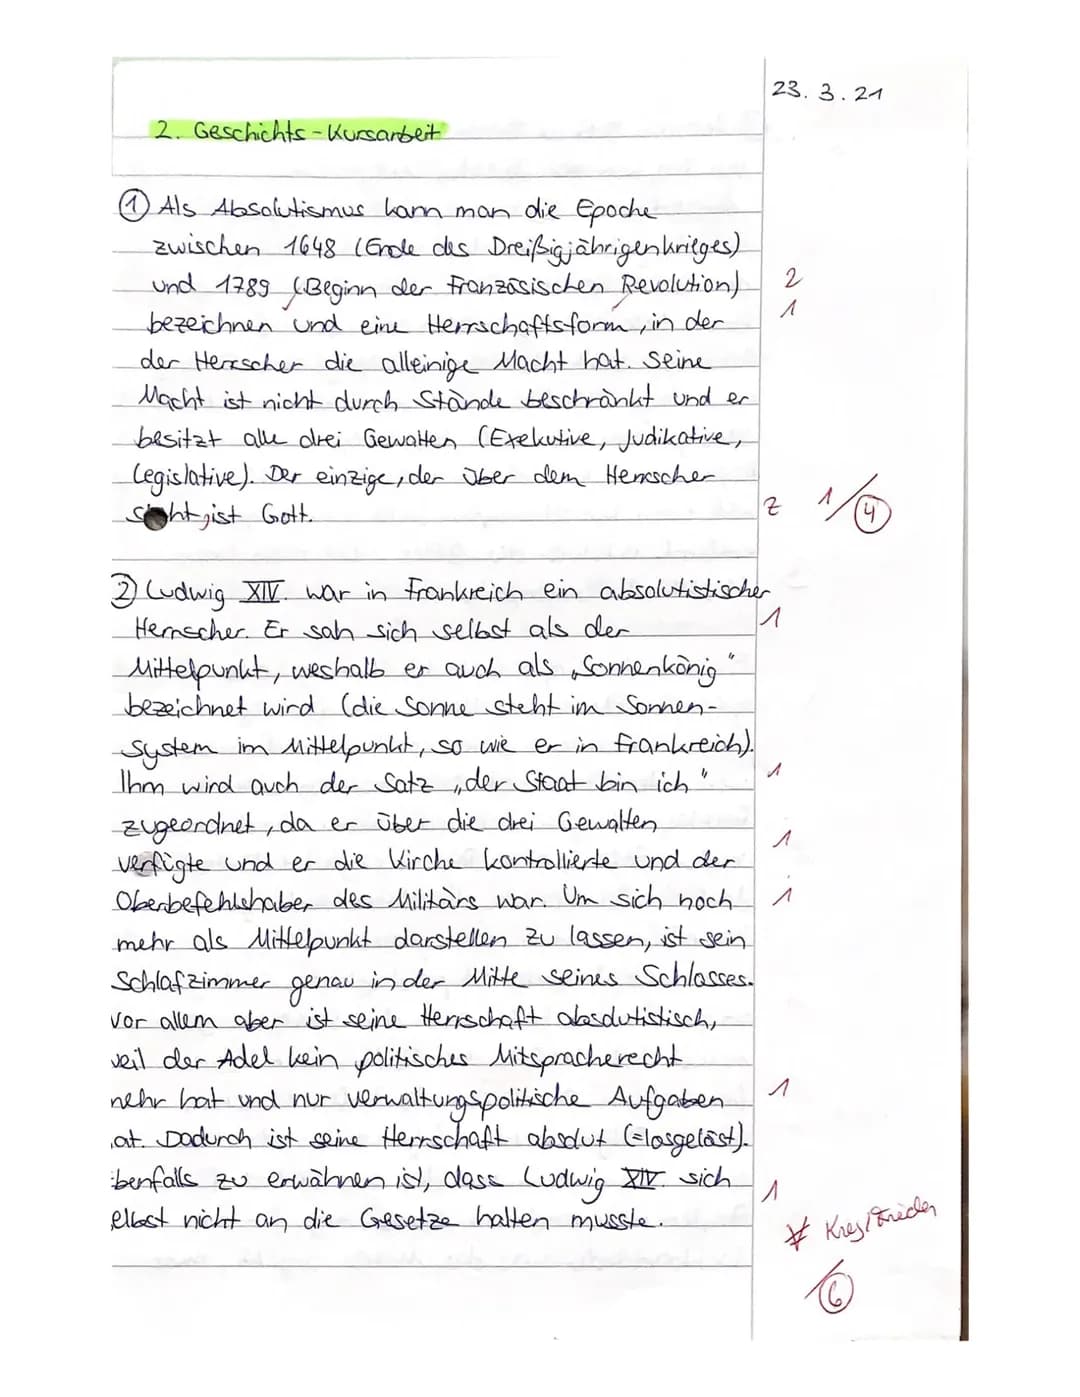 23. 3. 21
2. Geschichts-Kursarbeit
① Als Absolutismus kann man die Epoche
zwischen 1648 (Ende des Dreißigjährigenkrieges)
und 1789 (Beginn der Französischen Revolution)
2
1
bezeichnen und eine Herrschaftsform, in der
der Herrscher die alleinige Macht hat. Seine
Macht ist nicht durch Stände beschränkt und er
besitzt alle drei Gewalten (Exekutive, Judikative,
Legislative). Der einzige, der über dem Herrscher
steht, ist Gott.
Z 1/④
② Ludwig XIV. war in Frankreich ein absolutistischer
Herrscher. Er sah sich selbst als der
1
Mittelpunkt, weshalb er auch als „Sonnenkönig"
bezeichnet wird (die Sonne steht im Sonnen-
system im Mittelpunkt, so wie er in Frankreich).
Ihm wird auch der Satz „der Staat bin ich"
1
zugeordnet, da er über die drei Gewalten
1
verfügte und er die Kirche kontrollierte und der
Oberbefehlshaber des Militärs war. Um sich noch
1
mehr als Mittelpunkt darstellen zu lassen, ist sein
Schlafzimmer genau in der Mitte seines Schlosses.
Vor allem aber ist seine Herrschaft absolutistisch,
weil der Adel kein politisches Mitspracherecht
mehr hat und nur verwaltungspolitische Aufgaben
1
at. Dadurch ist seine Herrschaft absolut (=losgelöst).
benfalls zu erwähnen ist, dass Ludwig XIV. sich
1
elbst nicht an die Gesetze halten musste.
/⑥